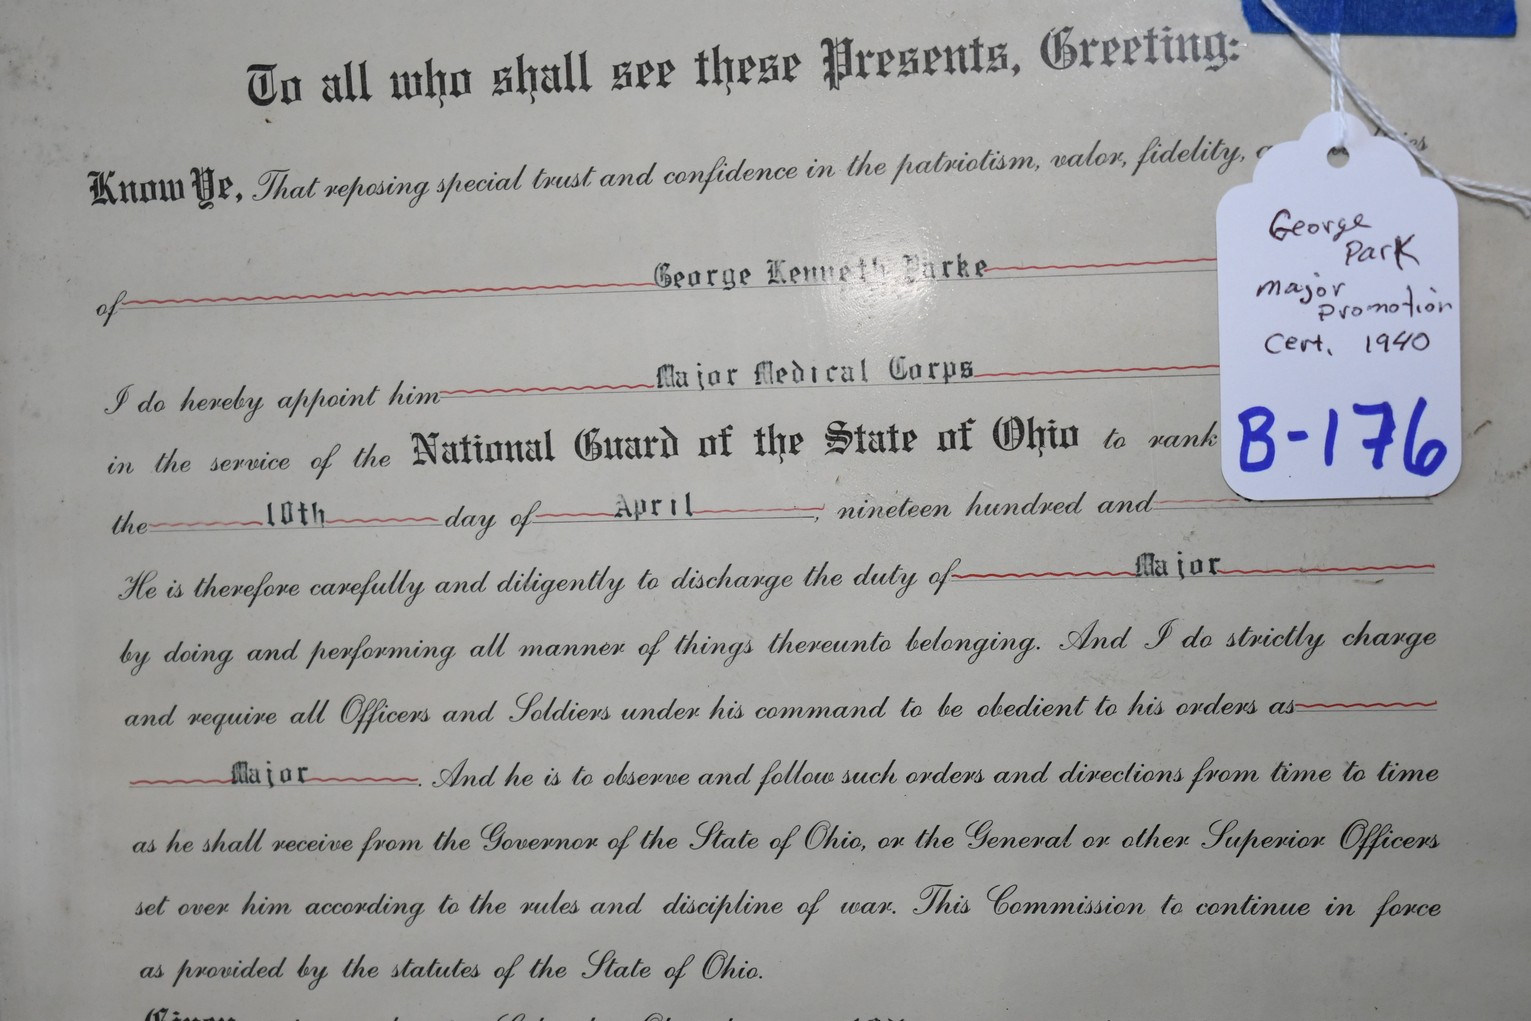 To all who shall see these Presents, Greeting:
Know Ye, That reposing special trust and confidence in the patriotism, valor, fidelity,
of George Kenneth Parke
I do hereby appoint him Major Medical Corps
in the service of the National Guard of the State of Ohio to rank
the 10th day of April, nineteen hundred and
He is therefore carefully and diligently to discharge the duty of Major
by doing and performing all manner of things thereunto belonging. And I do strictly charge
and require all Officers and Soldiers under his command to be obedient to his orders as
Major. And he is to observe and follow such orders and directions from time to time
as he shall receive from the Governor of the State of Ohio, or the General or other Superior Officers
set over him according to the rules and discipline of war. This Commission to continue in force
as provided by the statutes of the State of Ohio.
George
Park
Major
Promotion
Cert. 1940
B-176